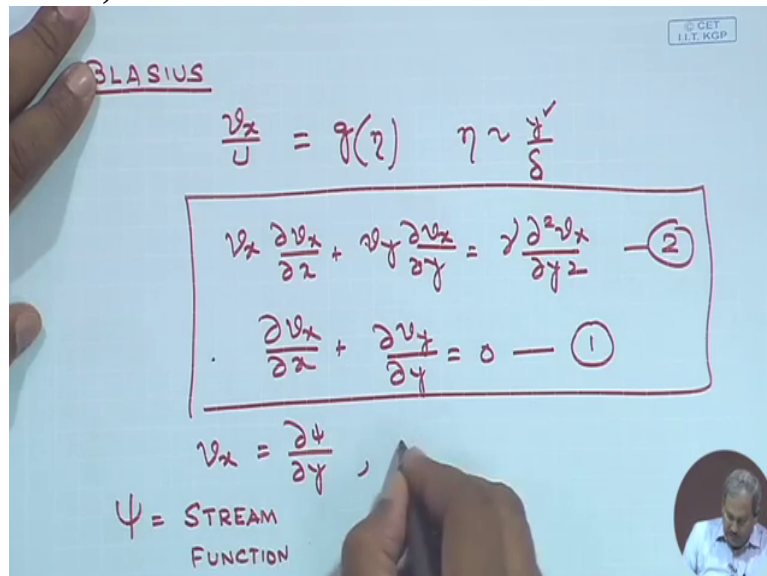 © CET
I.I.T. KGP
BLASIUS
v_x/U = g(η) η ~ y/δ ✓
v_x ∂v_x/∂x + v_y ∂v_x/∂y = ν ∂²v_x/∂y² — ②
∂v_x/∂x + ∂v_y/∂y = 0 — ①
v_x = ∂ψ/∂y ,
ψ = STREAM
FUNCTION